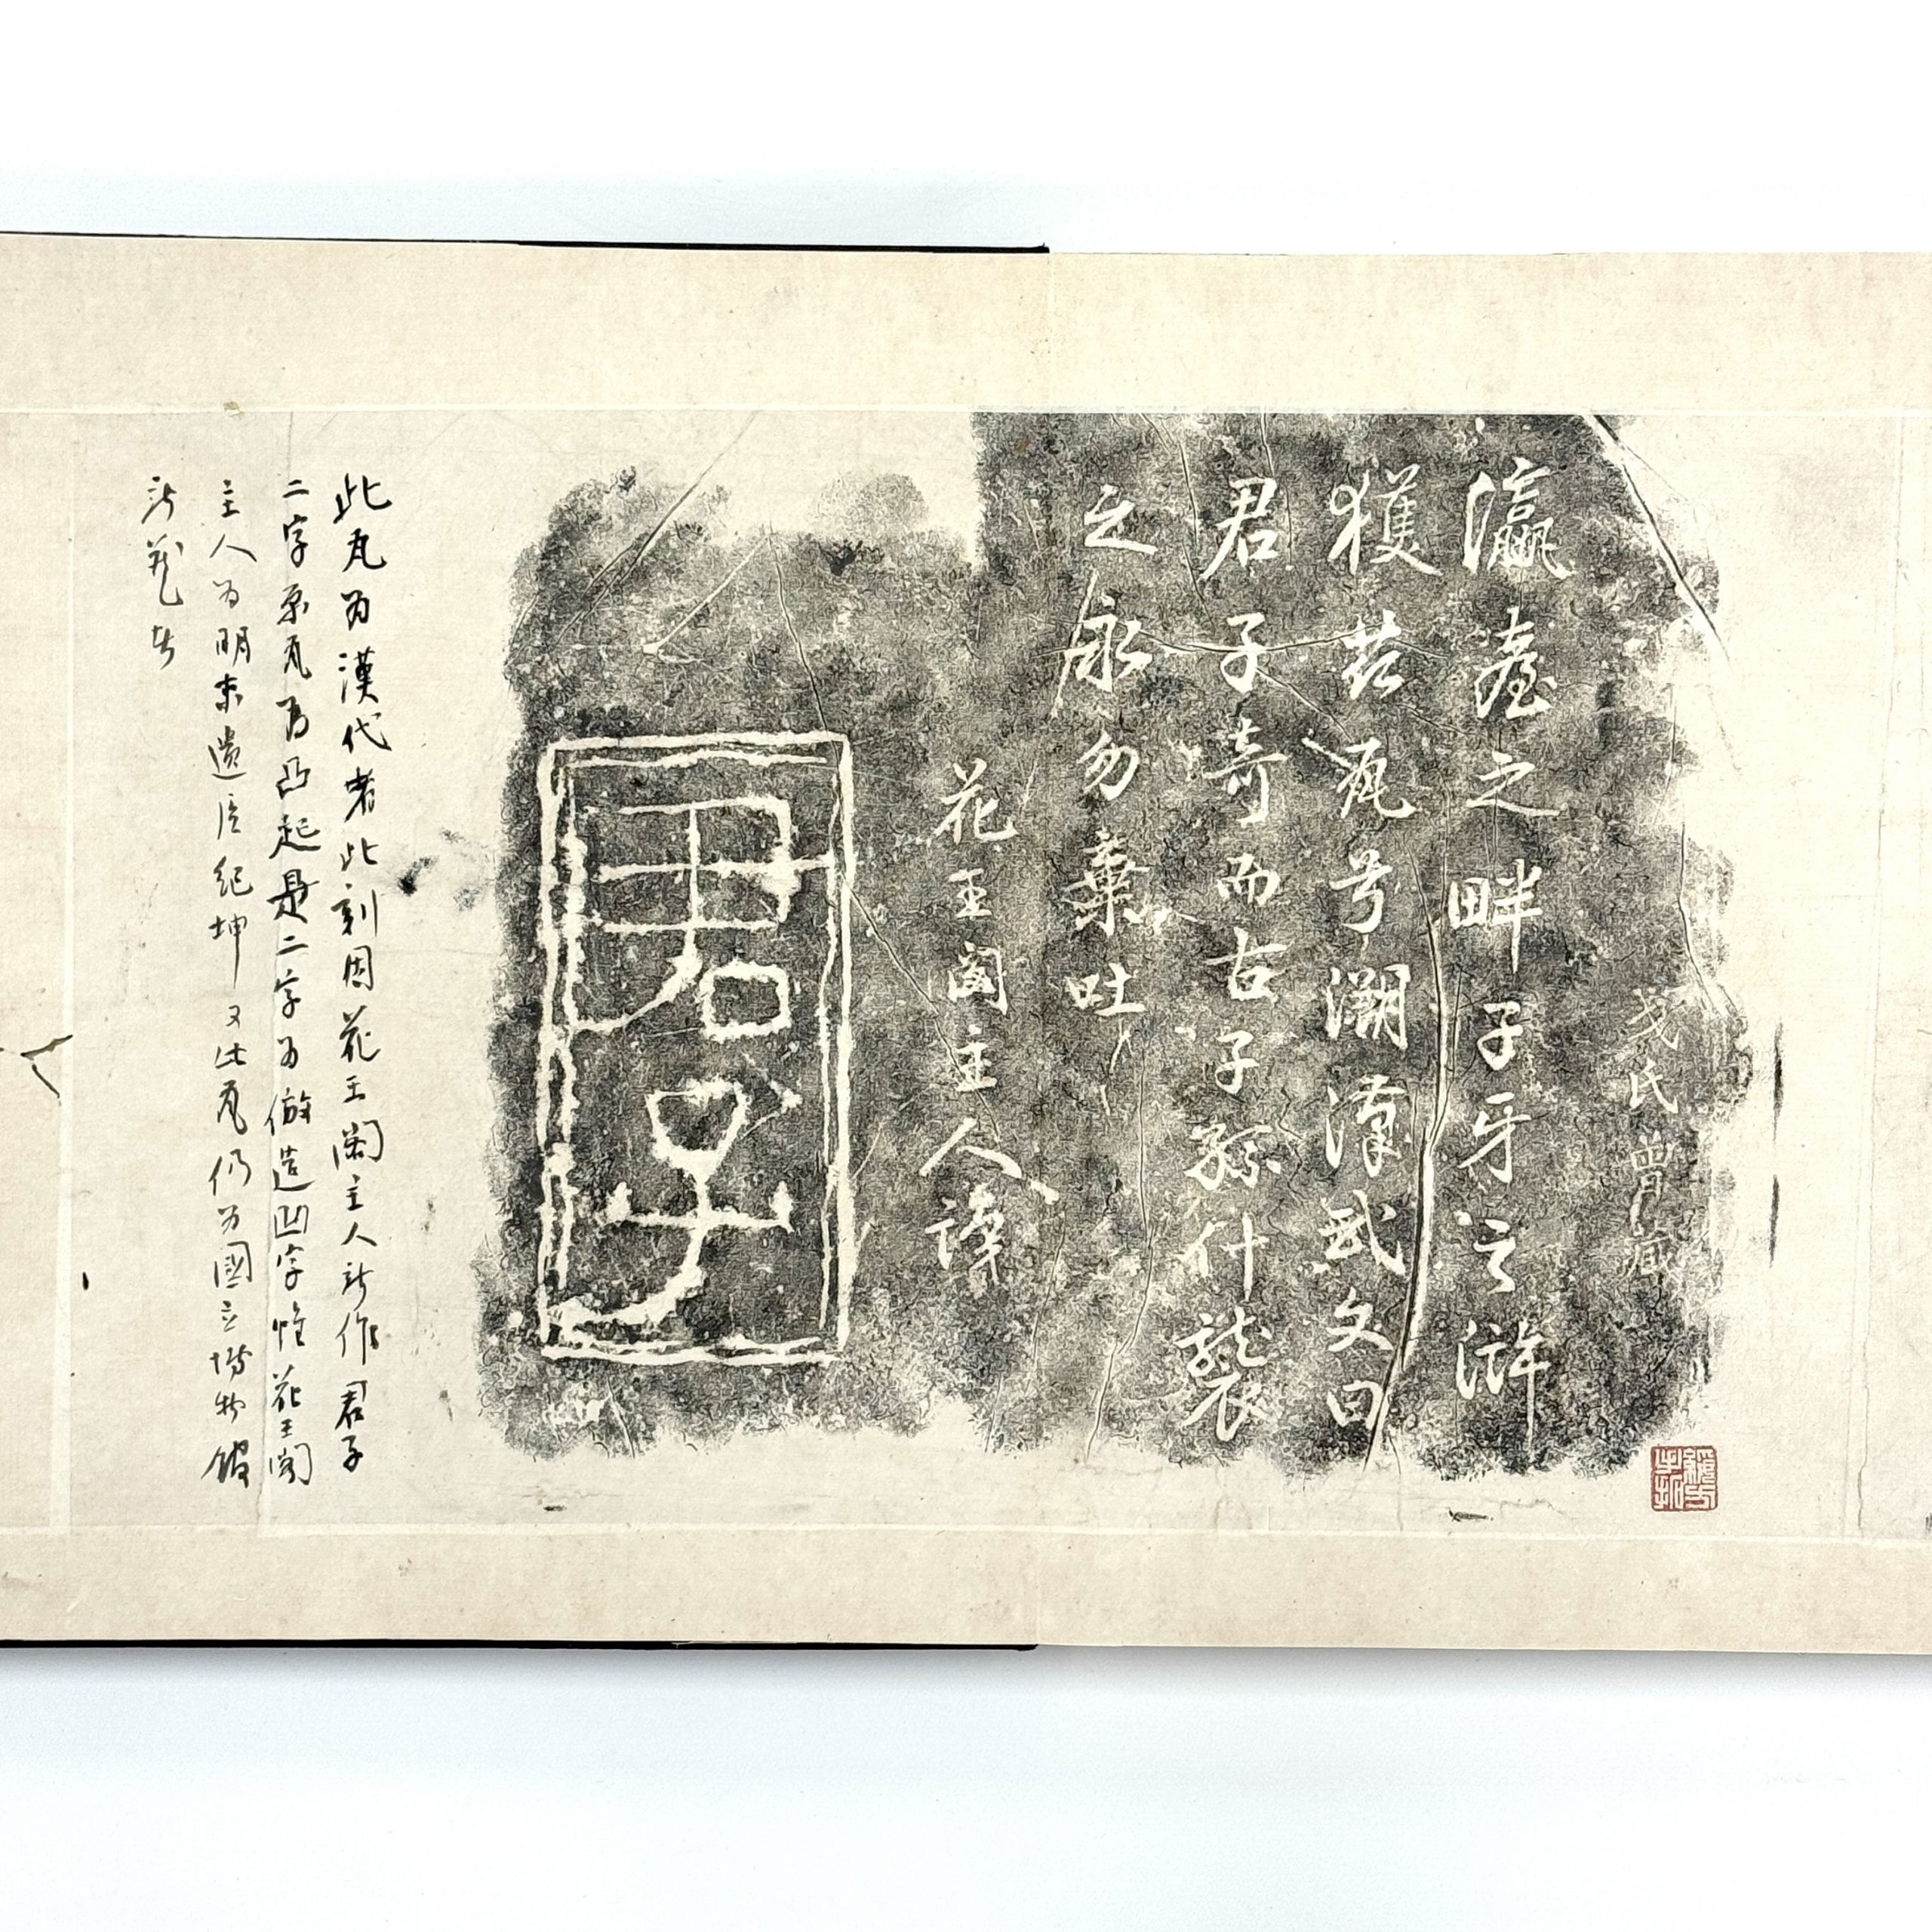 戈氏曾藏
瀛臺之畔子牙之滸
獲茲瓦兮溯漢武文曰
君子奇而古子孫什襲
之永勿棄吐
花王閣主人諱
君子
此瓦为漢代者此刻因花王閣主人新作君子
二字原瓦为凸起是二字为倣造凹字惟花王閣
主人为明末遺臣紀坤又此瓦仍为國立博物館